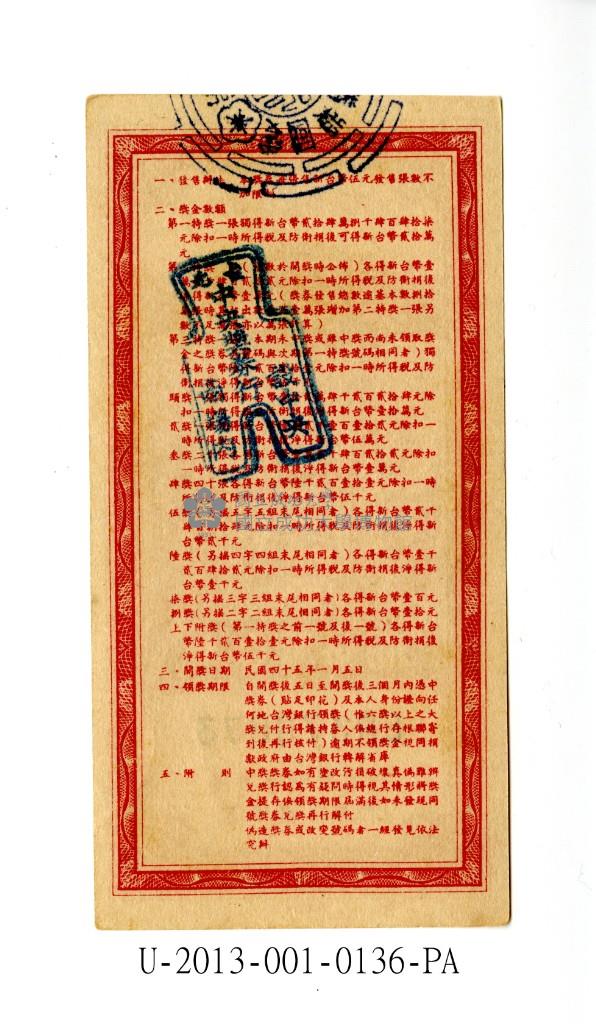 愛國獎
一、發售辦法
伍元發售張數不
加限
二、獎金數額
第一特獎一張獨得新台幣貳拾肆萬捌千肆百肆拾柒
元除扣一時所得稅及防衛捐後可得新台幣貳拾萬
元
數於開獎時公佈)各得新台幣壹
元除扣一時所得稅及防衛捐後
(獎券發售總數逾基本數捌拾
壹萬張增加第二特獎一張另
數
亦以萬張
算)
第三特獎
本期未
獎或雖中獎而尚未領取獎
金之獎券
號碼與次期第一特獎號碼相同者)獨
得新台幣
元除扣一時所得稅及防
衛捐後淨得新台幣
頭獎
肆千貳百貳拾肆元除
扣一時所得
衛捐後淨得新台幣壹拾萬元
貳獎
壹百壹拾貳元除扣一
時所得
防衛捐後淨得新台幣伍萬元
叁獎二
千肆百貳拾貳元除扣
一時所得稅及防衛捐後淨得新台幣壹萬元
肆獎四十張各得新台幣陸千壹百壹拾壹元除扣一時
所得稅及防衛捐後淨得新台幣伍千元
伍獎(另搖五字五組末尾相同者)各得新台幣貳千
肆百
拾肆元除扣一時所得稅及防衛捐後淨得新
台幣貳千元
陸獎(另搖四字四組末尾相同者)各得新台幣壹千
貳百肆拾貳元除扣一時所得稅及防衛捐後淨得新
台幣壹千元
柒獎(另搖三字三組末尾相同者)各得新台幣壹百元
捌獎(另搖二字二組末尾相同者)各得新台幣壹拾元
上下附獎(第一特獎之前一號及後一號)各得新台
幣陸千壹百壹拾壹元除扣一時所得稅及防衛捐後
淨得新台幣伍千元
三、開獎日期 民國四十五年一月五日
四、領獎期限 自開獎後五日至開獎後三個月內憑中
獎券(貼足印花)及本人身份證向任
何地台灣銀行領獎(惟六獎以上之大
獎兌付行得請持券人俟總行存根聯寄
到後再行核付)逾期不領獎金視同捐
獻政府由台灣銀行轉解省庫
五、附則 中獎獎券如有塗改污損破壞真偽難辨
兌獎行認為有疑問時得視其情形將獎
金提存俟領獎期限屆滿後如未發現同
號獎券兌獎再行解付
偽造獎券或改變號碼者一經發見依法
究辦
U-2013-001-0136-PA